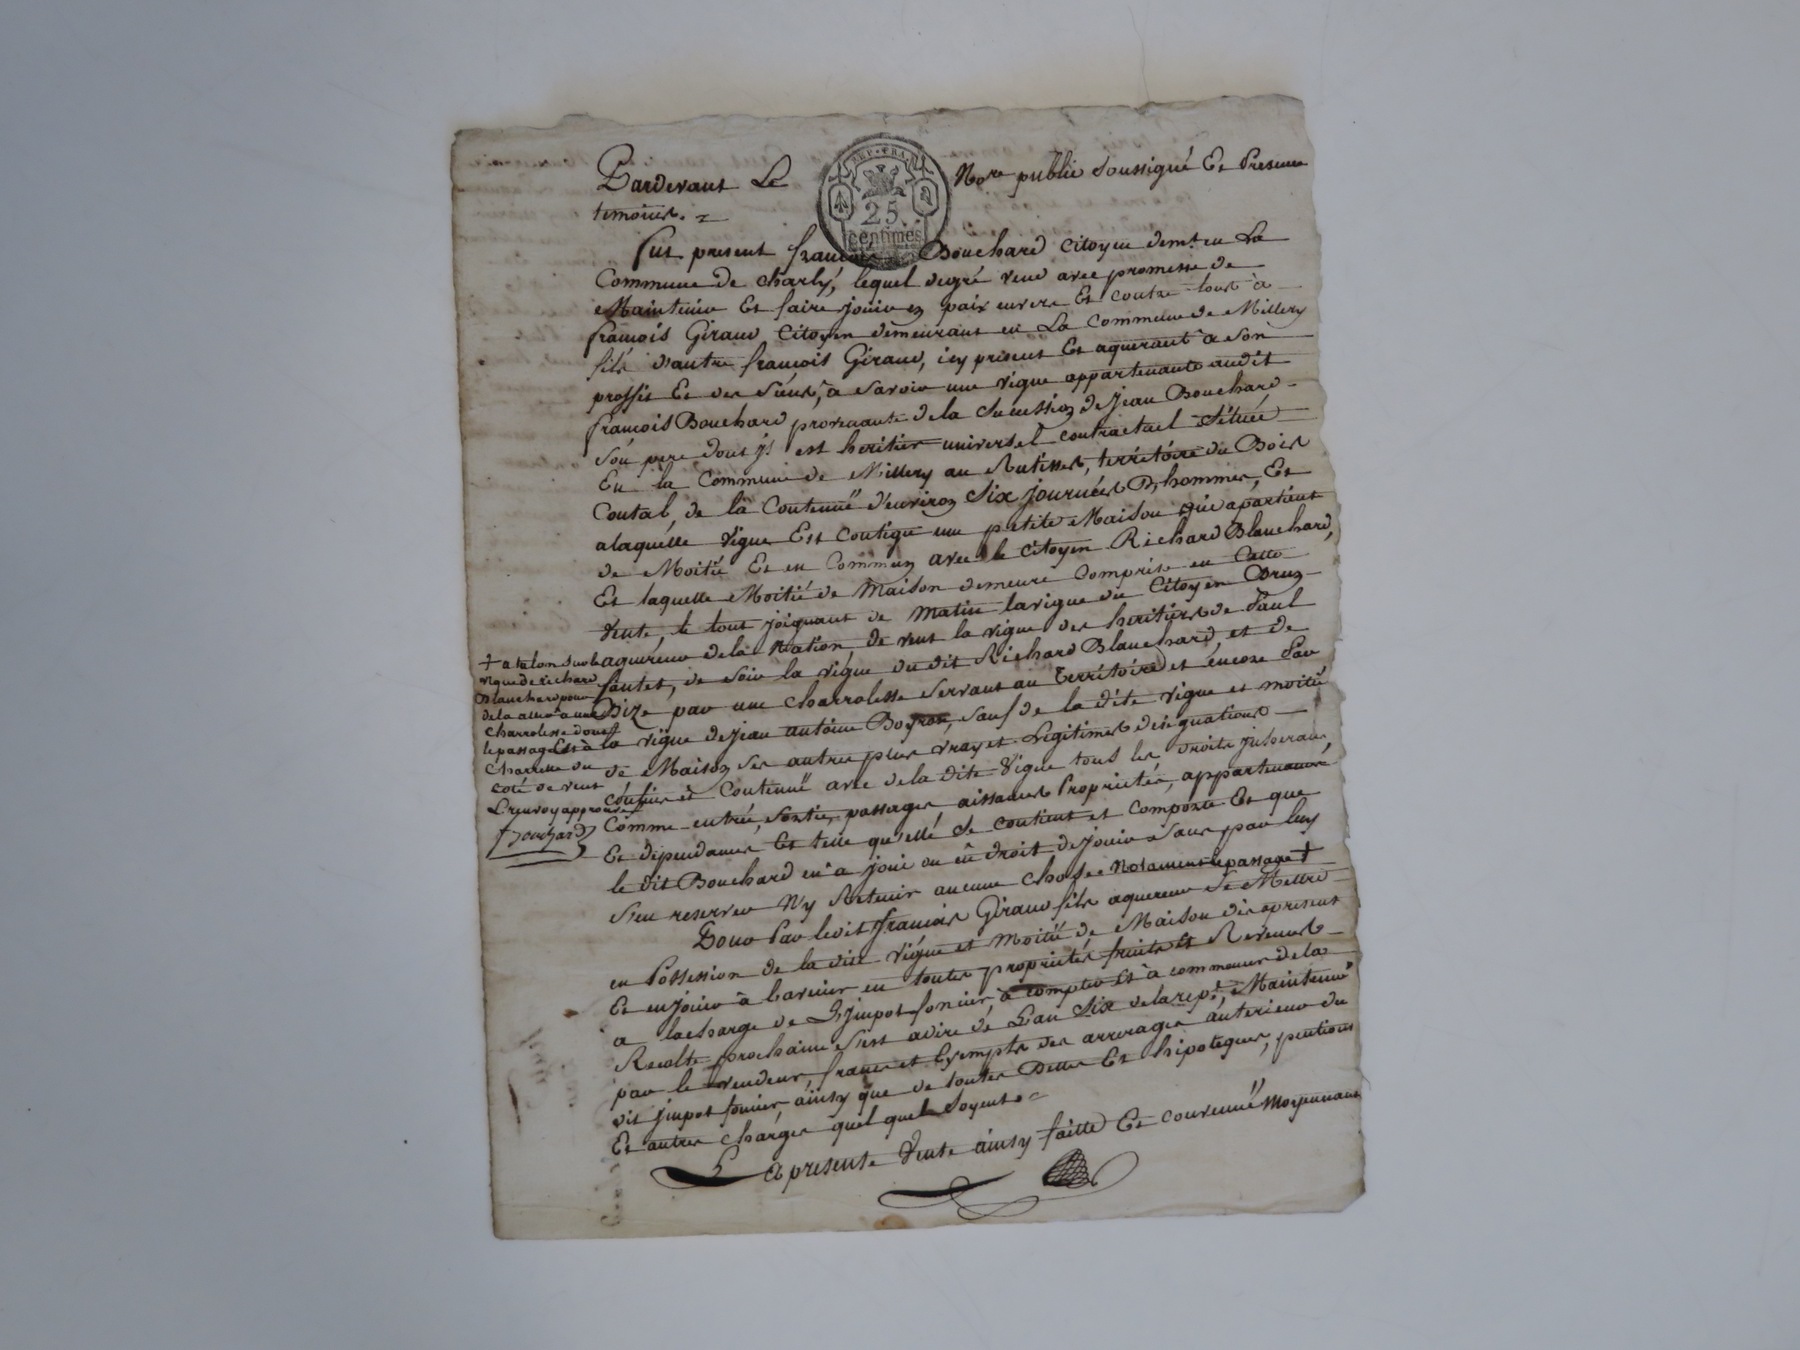 Pardevant Le Nore public Soussigné Et Presence
temoins. =
REP. FRA.
25
centimes
fut present francois Bouchard citoyen demt. en La
Commune de Charly, lequel degré vend avec promesse de
Maintenir Et faire jouir en paix envers Et contre tous à
francois Giraud Citoyen demeurant en La Commune de Millery
fils d'autre francois Giraud, icy present Et aquerant à son
proffit Et des Siens, a Savoir une vigne appartenante audit
francois Bouchard provenante de la Sucession de jean Bouchard
Son pere dont yl est heritier universel contractuel Située
En la Commune de Millery au territoire du Bois
Contal, de la Contenue d'environ Six journées D'hommes, Et
a laquelle vigne Est contigu une petite Maison qui apartient
de Moitié Et en Commun avec le Citoyen Richard Blanchard,
Et laquelle Moitié de Maison demeure Comprise en Cette
Vente, le tout joignant de Matin la vigne du Citoyen
aquereur de la Nation, de vent la vigne des heritiers de Paul
de Soir la vigne du dit Richard Blanchard, et de
Bize par une charrolesse Servant au Territoire et encore Par
la vigne de jean antoine Sauf de la dite vigne et moitié
de Maison ses autres plus vrays et Legitimes designations
confins et Contenue avec de la dite Vigne tous les droits
Comme entrée, Sortie, passages, aissances Proprietés, appartenances
Et dependances Et telle qu'elle Se contient et comporte Et que
le dit Bouchard en a joui ou eû droit de jouir Sans par luy
S'en reserver N'y Retenir aucune chose Notament le passage +
+ a talon Sur la
vigne de richard
Blanchard pour
de la aller à une
charrolesse dont
le passage Est à
Charrette du
coté de vent
L renvoy approuvé
Bouchard
Pour Par ledit francois Giraud fils aquereur Se Mettre
en Possession de la dite vigne et Moitié de Maison dès apresent
Et en jouir à l'avenir en toutes proprietés fruits Et Revenus
a la charge de L'jmpot foncier, à compter Et à commencer de la
Recolte prochaine S'est adire de L'an Six de la rep.e, Maintenue
par le vendeur, francs et Exempts des arrerages anterieur du
dit jmpot foncier, ainsy que de toutes Dettes Et hipoteques, pentions
Et autres charges quel quel Soyent =
La presente Vente ainsy faitte Et convenue Moyennant